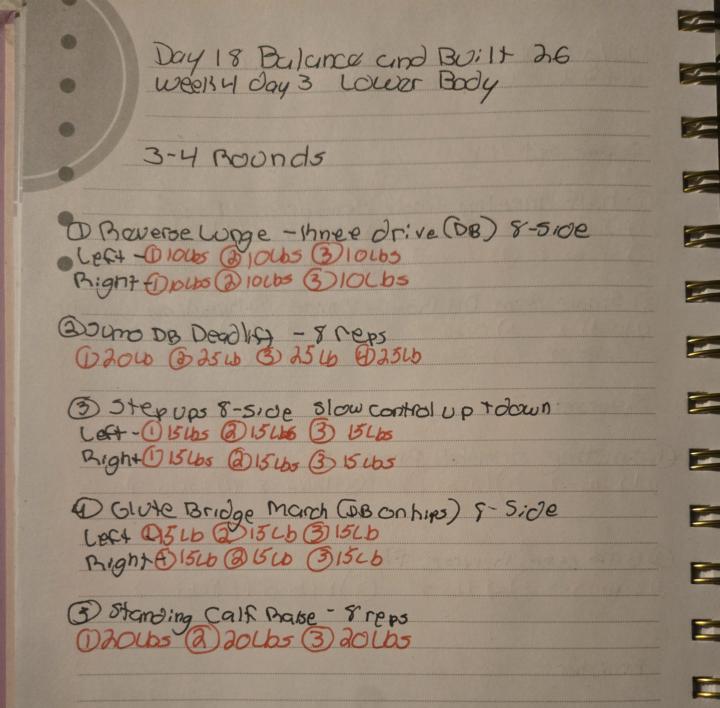 Day 18 Balance and Built 26
Week 4 day 3 Lower Body
3-4 Rounds
① Reverse Lunge - knee drive (DB) 8-side
Left - ① 10lbs ② 10lbs ③ 10lbs
Right - ① 10lbs ② 10lbs ③ 10Lbs
② Sumo DB Deadlift - 8 reps
① 20lb ② 25lb ③ 25lb ④ 25lb
③ Step ups 8-side slow control up + down
Left - ① 15lbs ② 15lbs ③ 15lbs
Right ① 15lbs ② 15lbs ③ 15lbs
④ Glute Bridge March (DB on hips) 8-side
Left ① 15lb ② 15lb ③ 15lb
Right - ① 15lb ② 15lb ③ 15lb
⑤ Standing Calf Raise - 8 reps
① 20Lbs ② 20Lbs ③ 20Lbs